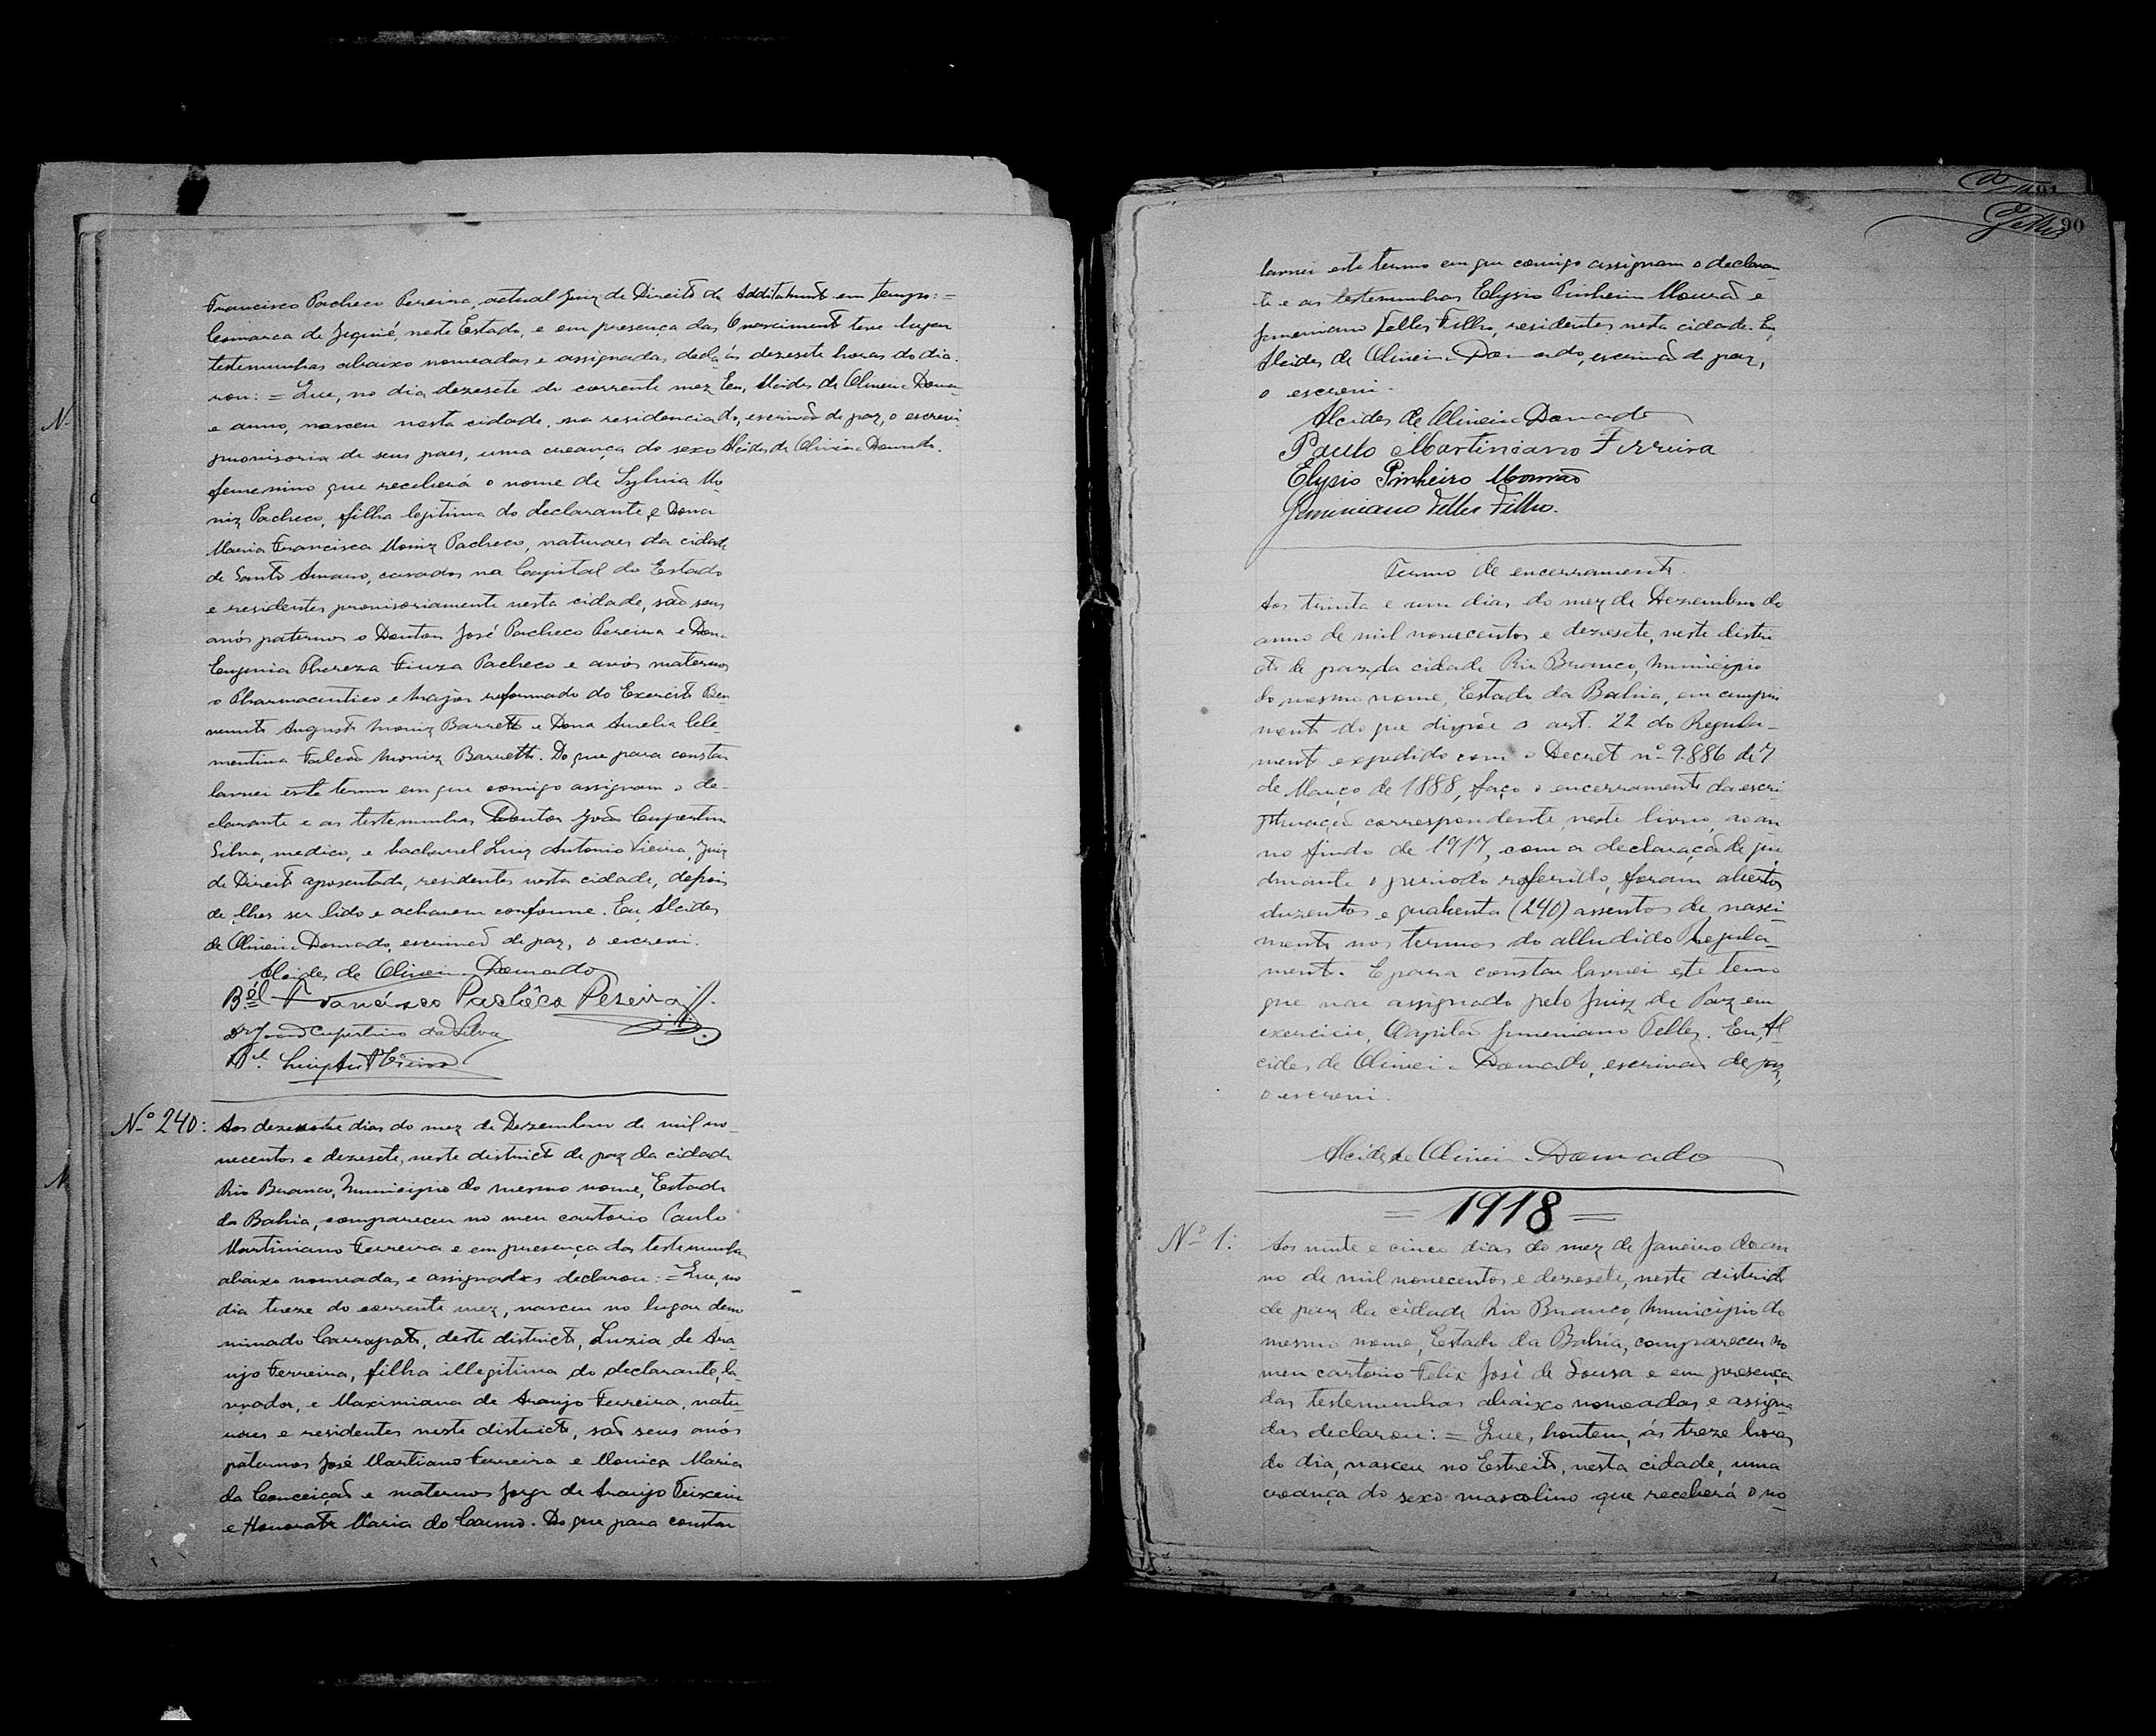 Francisco Pacheco Pereira, actual Juiz de Direito da
Comarca de Jequié, neste Estado, e em presença das
testemunhas abaixo nomeadas e assignadas decla-
rou: = Que, no dia dezesete do corrente mez
e anno, nasceu nesta cidade, na residencia
provisoria de seus paes, uma creança do sexo
femenino que receberá o nome de Sylvia Mo-
niz Pacheco, filha legitima do declarante e Dona
Maria Francisca Moniz Pacheco, naturaes da cidade
de Santo Amaro, casados na Capital do Estado
e residentes provisoriamente nesta cidade, são seus
avós paternos o Doutor José Pacheco Pereira e Dona
Eugenia Thereza Fiuza Pacheco e avós maternos
o Pharmaceutico e Major reformado do Exercito Ben-
venuto Augusto Moniz Barretto e Dona Amelia Cle-
mentina Falcão Moniz Barretto. Do que para constar
lavrei este termo em que comigo assignam o de-
clarante e as testemunhas Doutor João Cupertino
Silva, medico, e bacharel Luiz Antonio Vieira, Juiz
de Direito aposentado, residentes nesta cidade, depois
de lhes ser lido e acharem conforme. Eu, Alcides
de Oliveira Dourado, escrivão de paz, o escrevi.
Alcides de Oliveira Dourado
Bel Francisco Pachêco Pereira
Dr João Cupertino da Silva
Bel. Luiz Ant Vieira
Additamento em tempo: =
O nascimento teve lugar
ás dezesete horas do dia.
Eu, Alcides de Oliveira Doura-
do, escrivão de paz, o escrevi
Alcides de Oliveira Dourado.
Nº 240:
Aos dias do mez de Dezembro de mil no-
vecentos e dezesete, neste districto de paz da cidade
Rio Branco, Municipio do mesmo nome, Estado
da Bahia, compareceu no meu cartorio Paulo
Martiniano Ferreira e em presença das testemunhas
abaixo nomeadas e assignadas declarou: = Que, no
dia treze do corrente mez, nasceu no lugar deno
minado Carrapato, deste districto, Luzia de Ara-
ujo Ferreira, filha illegitima do declarante, la-
vrador, e Maximiana de Araujo Ferreira, natu-
raes e residentes neste districto, são seus avós
paternos José Martiano Ferreira e Monica Maria
da Conceição e maternos Jorge de Araujo Teixeira
e Honorata Maria do Carmo. Do que para constar
90
Telles
lavrei este termo em que comigo assignam o declaran
te e as testemunhas Elysio Pinheiro Mourão e
Jumeniano Telles Filho, residentes nesta cidade. Eu,
Alcides de Oliveira Dourado, escrivão de paz,
o escrevi.
Alcides de Oliveira Dourado
Paulo Martiniano Ferreira
Elysio Pinheiro Mourão
Juminiano Telles Filho.
Termo de encerramento.
Aos trinta e um dias do mez de Dezembro do
anno de mil novecentos e dezesete, neste distri
cto de paz da cidade Rio Branco, Municipio
do mesmo nome, Estado da Bahia, em cumpri
mento do que dispõe o art. 22 do Regula-
mento expedido com o Decreto nº 9.886 de 7
de Março de 1888, faço o encerramento da escri-
pturação correspondente, neste livro, ao an
no findo de 1917, com a declaração de que
durante o periodo referido, foram abertos
duzentos e quarenta (240) assentos de nasci-
mento nos termos do alludido Regula-
mento. E para constar lavrei este termo
que vae assignado pelo Juiz de Paz em
exercicio, Capitão Jumeniano Telles. Eu, Al-
cides de Oliveira Dourado, escrivão de paz,
o escrevi.
Alcides de Oliveira Dourado
= 1918 =
Nº 1:
Aos vinte e cinco dias do mez de Janeiro do an
no de mil novecentos e dezesete, neste districto
de paz da cidade Rio Branco, Municipio do
mesmo nome, Estado da Bahia, compareceu no
meu cartorio Felix José de Sousa e em presença
das testemunhas abaixo nomeadas e assigna
das declarou: = Que, hontem, ás treze horas
do dia, nasceu no Estreito, nesta cidade, uma
creança do sexo mascolino que receberá o no-